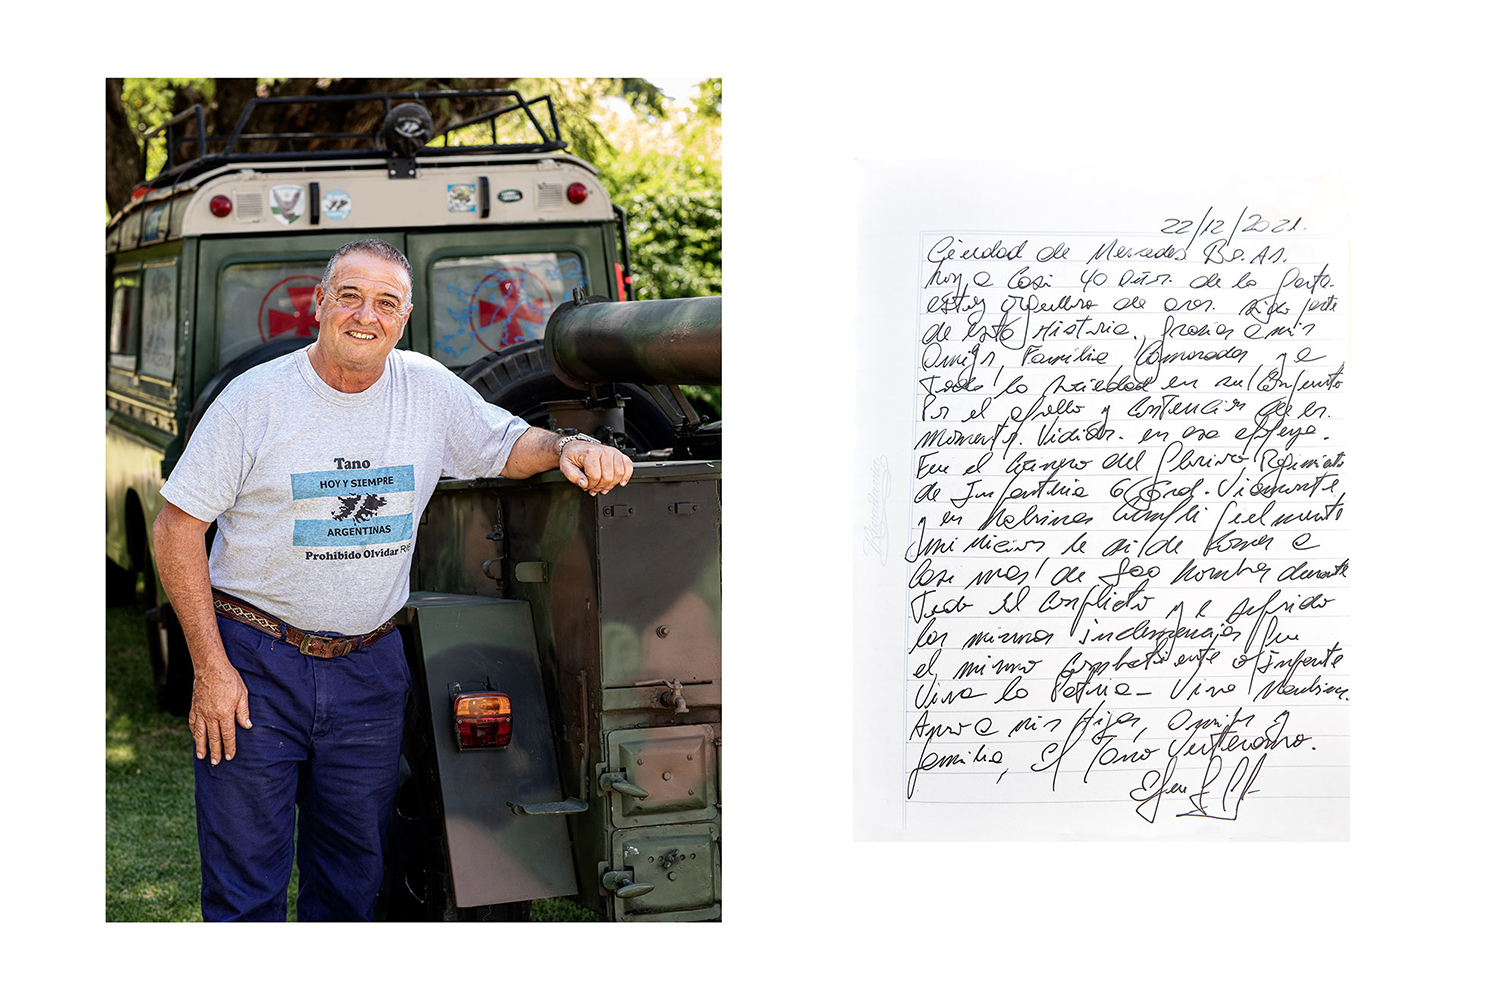 Tano
HOY Y SIEMPRE
ARGENTINAS
Prohibido Olvidar
22/12/2021.
Ciudad de Mercedes Bs. As.
hoy a casi 40 años de la
estoy orgulloso de parte
de esta Historia, gracias a mis
Amigos, Familia Camaradas y a
Toda la sociedad en su Conjunto
Por el apoyo y Contencion
momentos Vividos. en esa epopeya.
Fui el del Regimiento
de Infanteria 6 Gral. Viamonte,
y en Malvinas Cumpli fielmente
mi mision la de dar de Comer a
casi mas de hombres durante
Todo el Conflicto y e sufrido
las mismas inclemencias que
el mismo Combatiente o infante
Viva la Patria - Viva Malvinas.
a mis Hijos, Amigos y
familia, el Tano